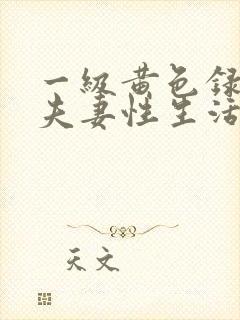 一级黄色录
夫妻性生活
天文